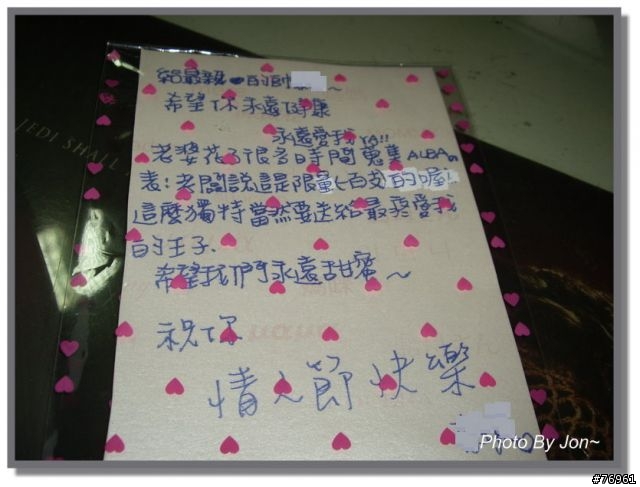 給最親的帥 ~
希望你永遠健康
永遠愛我 YA!!
老婆花了很多時間蒐集ALBA の
表:老闆說這是限量(一百支)的喔!
這麼獨特當然要送給最疼愛我
的王子.
希望我們永遠甜蜜~
祝你
情人節快樂
JEDI SHALL
Photo By Jon~
#76961